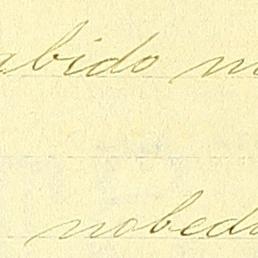 abido m
nobed